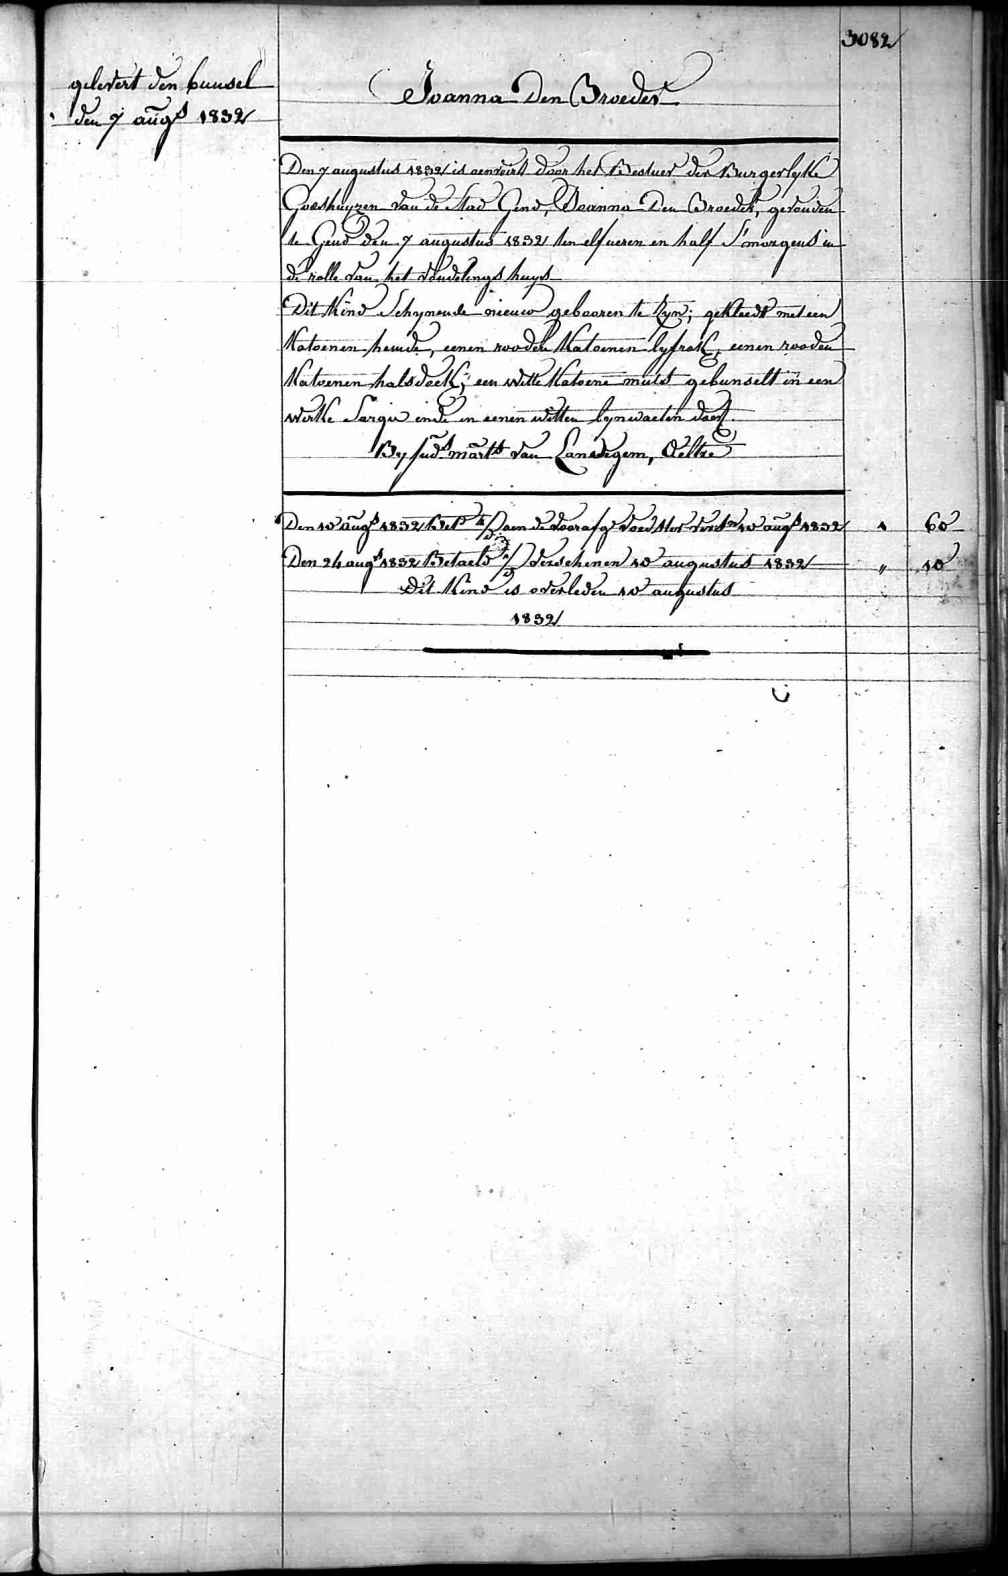 3082
gelevert den bunsel
den 7 augs 1832
Joanna Den Broeder
Den 7 augustus 1832 is aenveirt door het Bestuer der Burgerlyke
Godshuyzen van de Stad Gend, Joanna Den Broeder, gevonden
te Gend den 7 augustus 1832 ten elf ueren en half S'morgens in
de rolle van het vondelings huys
Dit Kind Schynende nieuw gebooren te Zyn; gekleedt met een
Katoenen hemde, eenen rooden Katoenen lyfrok, eenen rooden
Katoenen halsdoek; een witte Katoene muts gebunselt in een
witte Sargie ende in eenen witten lynwaeten doek.
By Juds marts van Landegem, Oeltre
Den 10 augs 1832 aen de voorafg voedster 10 augs 1832 " 60
Den 24 augs 1832 Betaeld verschenen 10 augustus 1832 " 10
Dit Kind is overleden 10 augustus
1832